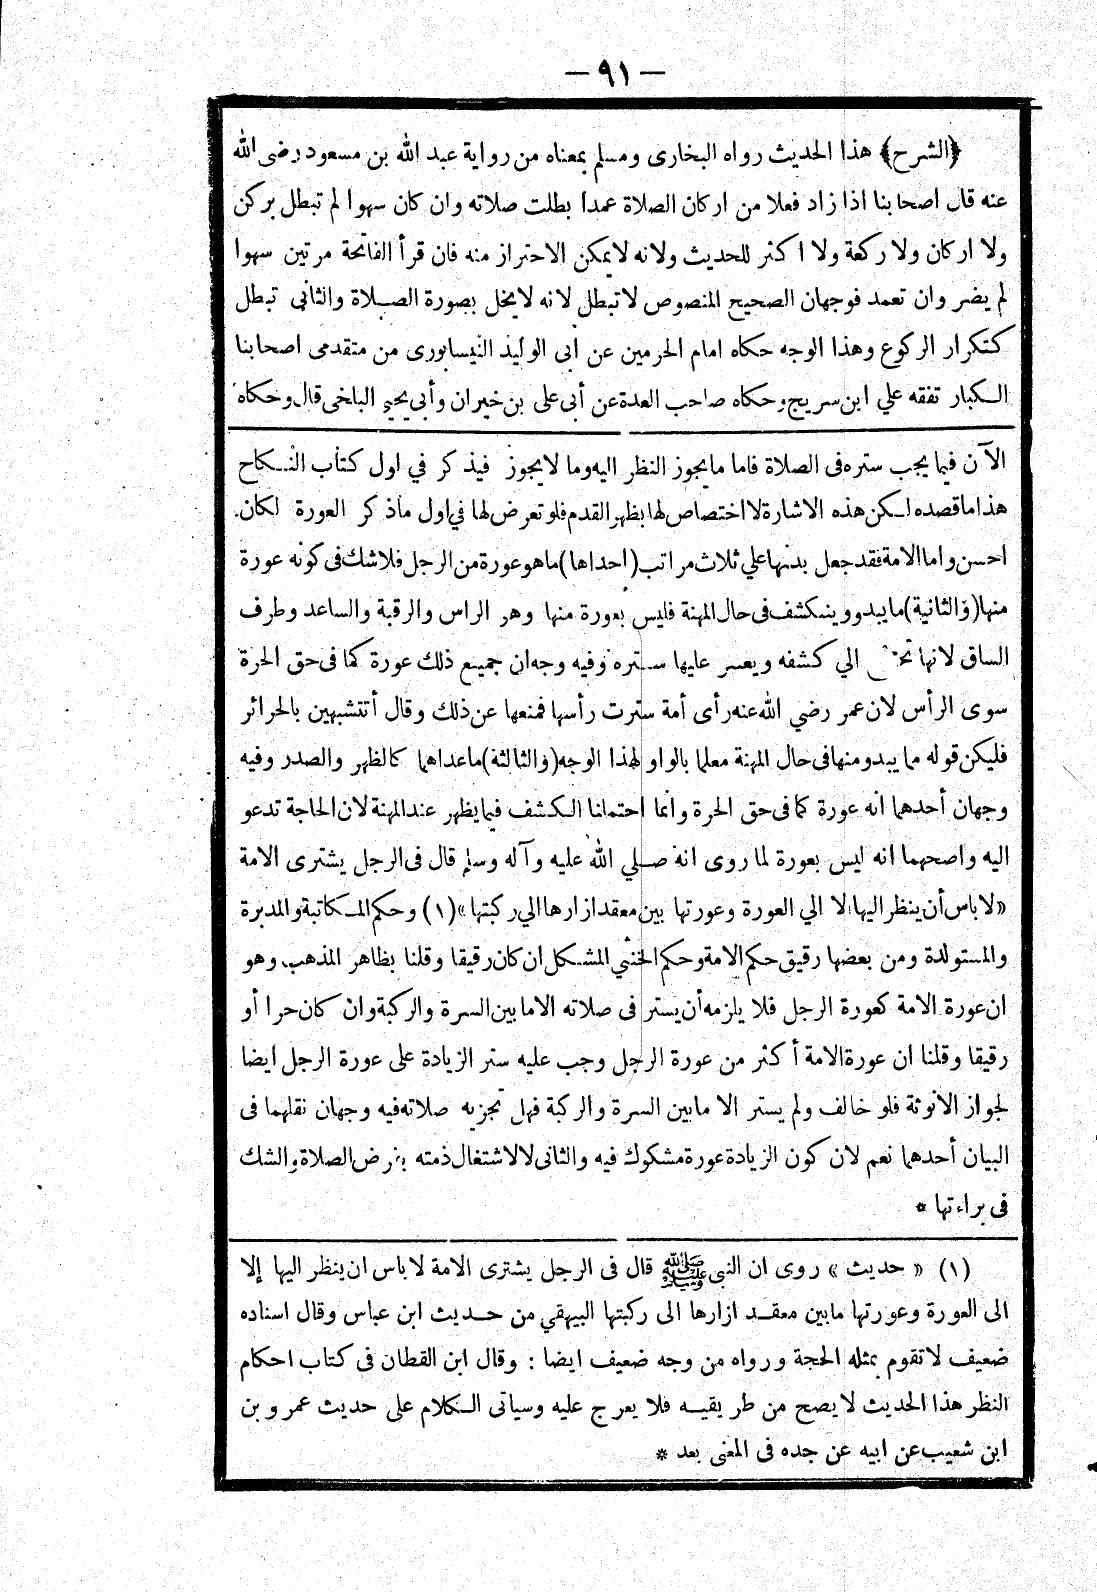 — ٩١ —
﴿الشرح﴾ هذا الحديث رواه البخارى ومسلم بمعناه من رواية عبد الله بن مسعود رضى الله
عنه قال اصحابنا اذا زاد فعلا من اركان الصلاة عمدا بطلت صلاته وان كان سهوا لم تبطل بركن
ولا اركان ولا ركعة ولا اكثر للحديث ولانه لا يمكن الاحتراز منه فان قرأ الفاتحة مرتين سهوا
لم يضر وان تعمد فوجهان الصحيح المنصوص لا تبطل لانه لا يخل بصورة الصلاة والثانى تبطل
كتكرار الركوع وهذا الوجه حكاه امام الحرمين عن ابى الوليد النيسابورى من متقدمى اصحابنا
الكبار تفقه علي ابن سريج وحكاه صاحب العدة عن أبى على بن خيران وأبى يحيى البلخى قال وحكاه
الآن فيما يجب ستره فى الصلاة فاما ما يجوز النظر اليه وما لا يجوز فيذكر في اول كتاب النكاح
هذا ما قصده لكن هذه الاشارة لا اختصاص لها بظهر القدم فلو تعرض لها في اول ماذكر العورة لكان
احسن واما الامة فقد جعل بدنها علي ثلاث مراتب (احداها) ما هو عورة من الرجل فلا شك فى كونه عورة
منها (والثانية) ما يبدو وينكشف فى حال المهنة فليس بعورة منها وهر الراس والرقبة والساعد وطرف
الساق لانها الي كشفه ويعسر عليها ستره وفيه وجه ان جميع ذلك عورة كما فى حق الحرة
سوى الرأس لان عمر رضي الله عنه رأى أمة سترت رأسها فمنعها عن ذلك وقال أتتشبهين بالحرائر
فليكن قوله مما يبدو منها فى حال المهنة معلما بالواو لهذا الوجه (والثالثة) ماعداهما كالظهر والصدر وفيه
وجهان أحدهما انه عورة كما فى حق الحرة وانما احتملنا الكشف فيما يظهر عند المهنة لان الحاجة تدعو
اليه واصحهما انه ليس بعورة لما روى انه صلي الله عليه وآله وسلم قال فى الرجل يشترى الامة
«لا باس أن ينظر اليها الا الي العورة وعورتها بين معقد ازارها الي ركبتها» (١) وحكم المكاتبة والمدبرة
والمستولدة ومن بعضها رقيق حكم الامة وحكم الخنثي المشكل ان كان رقيقا وقلنا بظاهر المذهب وهو
ان عورة الامة كعورة الرجل فلا يلزمه أن يستر فى صلاته الا ما بين السرة والركبة وان كان حرا أو
رقيقا وقلنا ان عورة الامة أكثر من عورة الرجل وجب عليه ستر الزيادة على عورة الرجل ايضا
لجواز الانوثة فلو خالف ولم يستر الا مابين السرة والركبة فهل تجزيه صلاته فيه وجهان نقلهما فى
البيان أحدهما نعم لان كون الزيادة عورة مشكوك فيه والثانى لا لاشتغال ذمته بفرض الصلاة والشك
فى براءتها *
(١) « حديث » روى ان النبى ﷺ قال فى الرجل يشترى الامة لا باس ان ينظر اليها إلا
الى العورة وعورتها مابين معقد ازارها الى ركبتها البيهقي من حديث ابن عباس وقال اسناده
ضعيف لا تقوم بمثله الحجة ورواه من وجه ضعيف ايضا : وقال ابن القطان فى كتاب احكام
النظر هذا الحديث لا يصح من طريقيه فلا يعرج عليه وسياتى الكلام على حديث عمرو بن
ابن شعيب عن ابيه عن جده فى المعنى بعد *